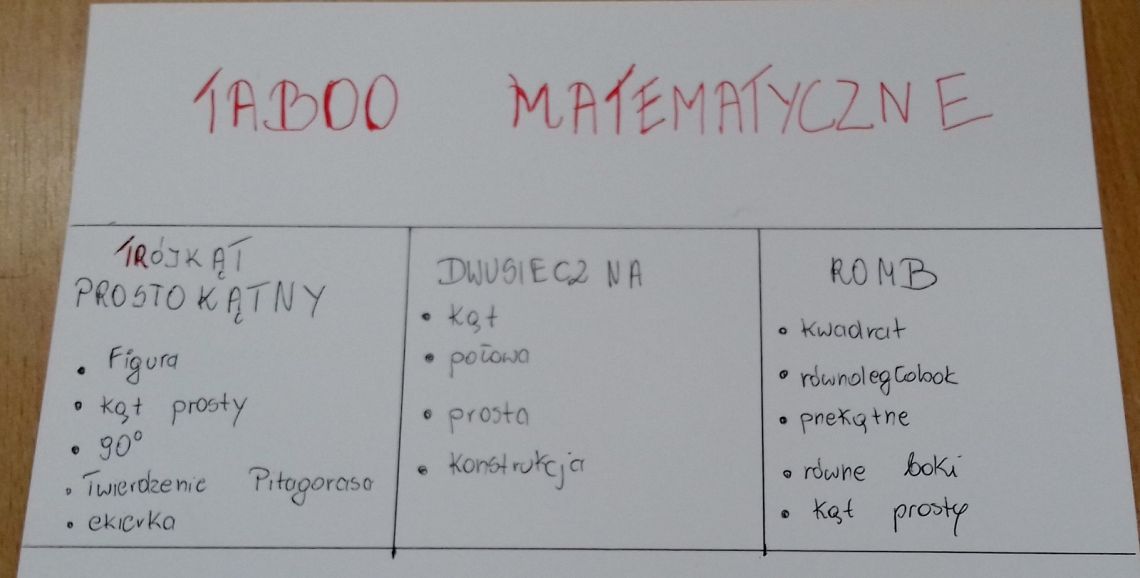 TABOO MATEMATYCZNE
TRÓJKĄT
PROSTOKĄTNY
• Figura
• kąt prosty
• 90°
• Twierdzenie Pitagorasa
• ekierka
DWUSIECZNA
• kąt
• połowa
• prosta
• konstrukcja
ROMB
• kwadrat
• równoległobok
• przekątne
• równe boki
• kąt prosty